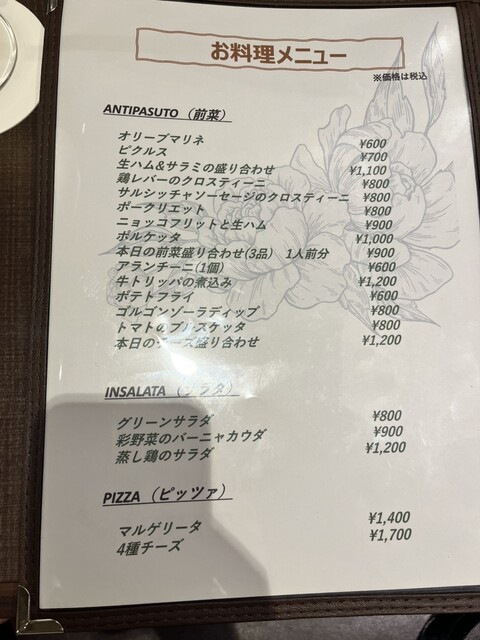 お料理メニュー
※価格は税込
ANTIPASUTO （前菜）
オリーブマリネ ¥600
ピクルス ¥700
生ハム&サラミの盛り合わせ ¥1,100
鶏レバーのクロスティーニ ¥800
サルシッチャソーセージのクロスティーニ ¥800
ポークリエット ¥800
ニョッコフリットと生ハム ¥900
ポルケッタ ¥1,000
本日の前菜盛り合わせ(3品) 1人前分 ¥900
アランチーニ(1個) ¥600
牛トリッパの煮込み ¥1,200
ポテトフライ ¥600
ゴルゴンゾーラディップ ¥800
トマトのブルスケッタ ¥800
本日のチーズ盛り合わせ ¥1,200
INSALATA （サラダ）
グリーンサラダ ¥800
彩野菜のバーニャカウダ ¥900
蒸し鶏のサラダ ¥1,200
PIZZA （ピッツァ）
マルゲリータ ¥1,400
4種チーズ ¥1,700